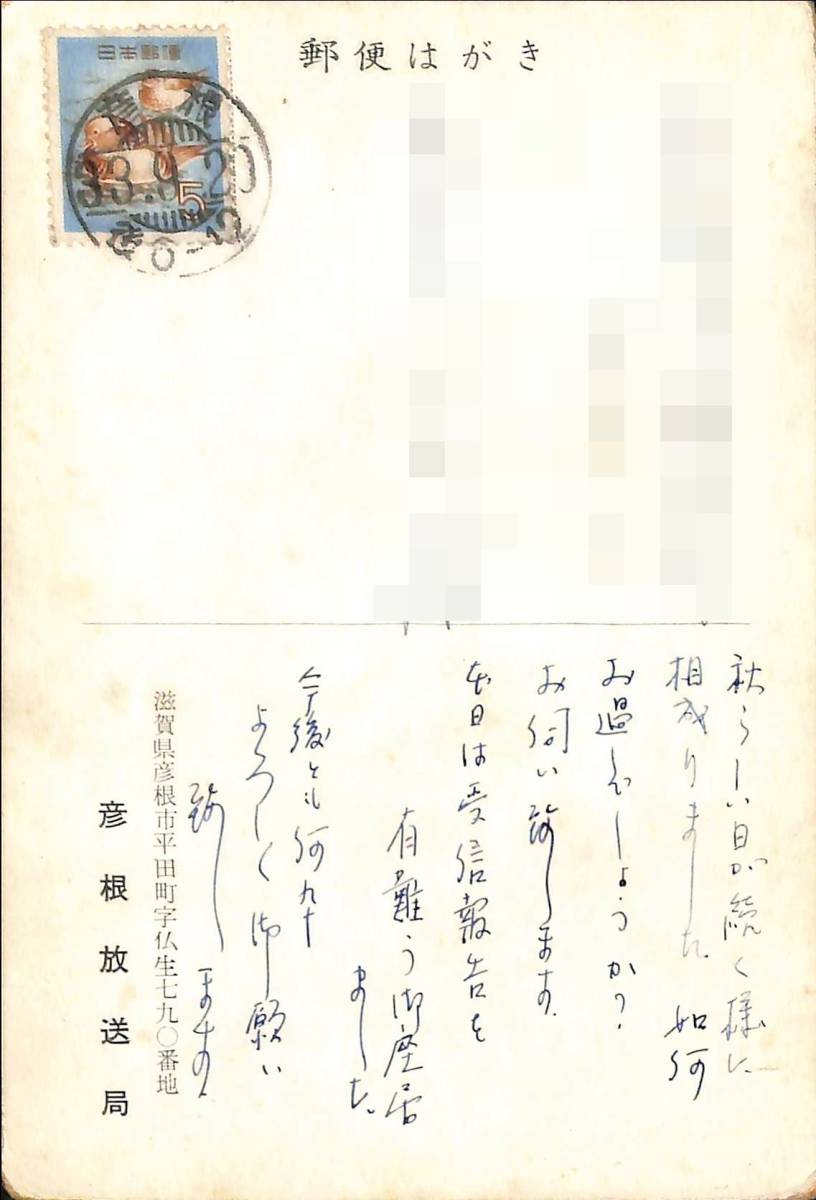 郵便はがき
日本郵便
5
彦根
33.9.20
秋らしい日が続く様に
相成りました。如何
お過しでしょうか?
お伺い致します。
本日は受信報告を
有難う御座居
ました。
今後とも何卆
よろしく御願い
致し ます。
滋賀県彦根市平田町字仏生七九〇番地
彦根放送局